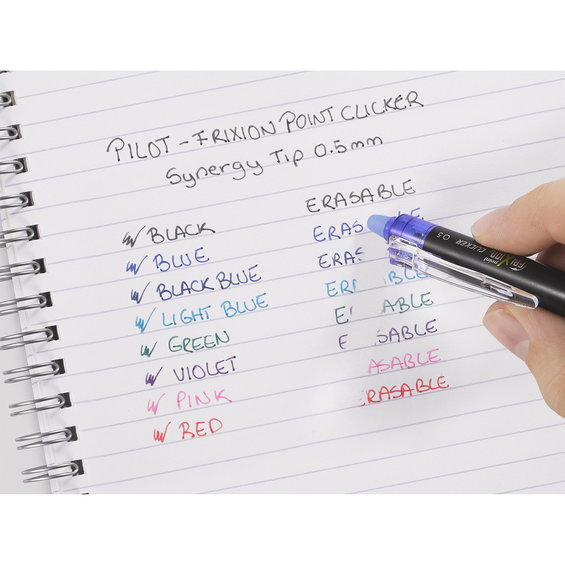 PILOT - FRIXION POINT CLICKER
Synergy Tip 0.5mm
ERASABLE
BLACK
BLUE
ERAS
BLACK BLUE
ERAS
LIGHT BLUE
ER BLE
GREEN
E ABLE
VIOLET
E SABLE
PINK
ASABLE
RED
ERASABLE
FRIXION CLICKER 0.5